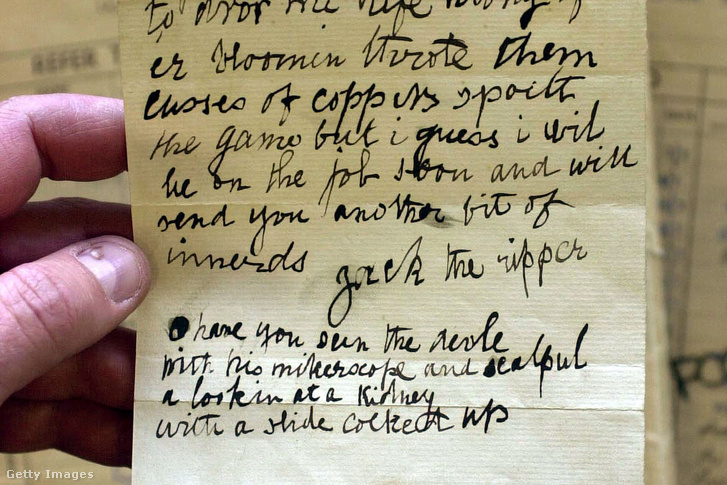 to drop me nife along of
er bloomin throte them
cusses of coppers spoilt
the game but i guess i wil
be on the job soon and will
send you another bit of
innerds Jack the ripper
O have you seen the devle
with his mikerscope and scalpul
a lookin at a Kidney
with a slide cocked up
REFER T
Getty Images